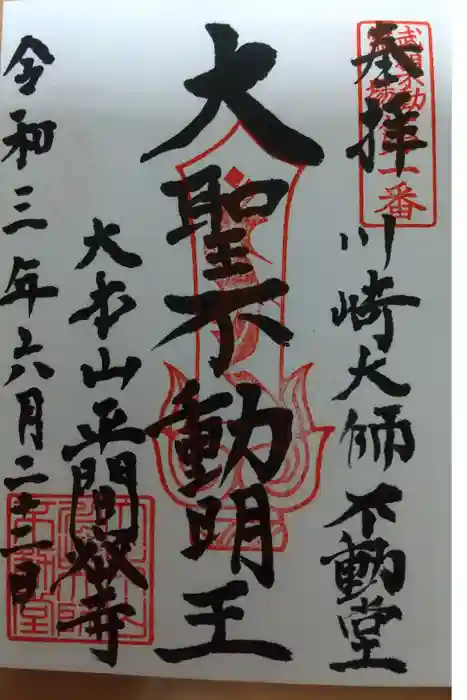 奉拝
川崎大師不動堂
大聖不動明王
大本山平間寺
令和三年六月二十二日